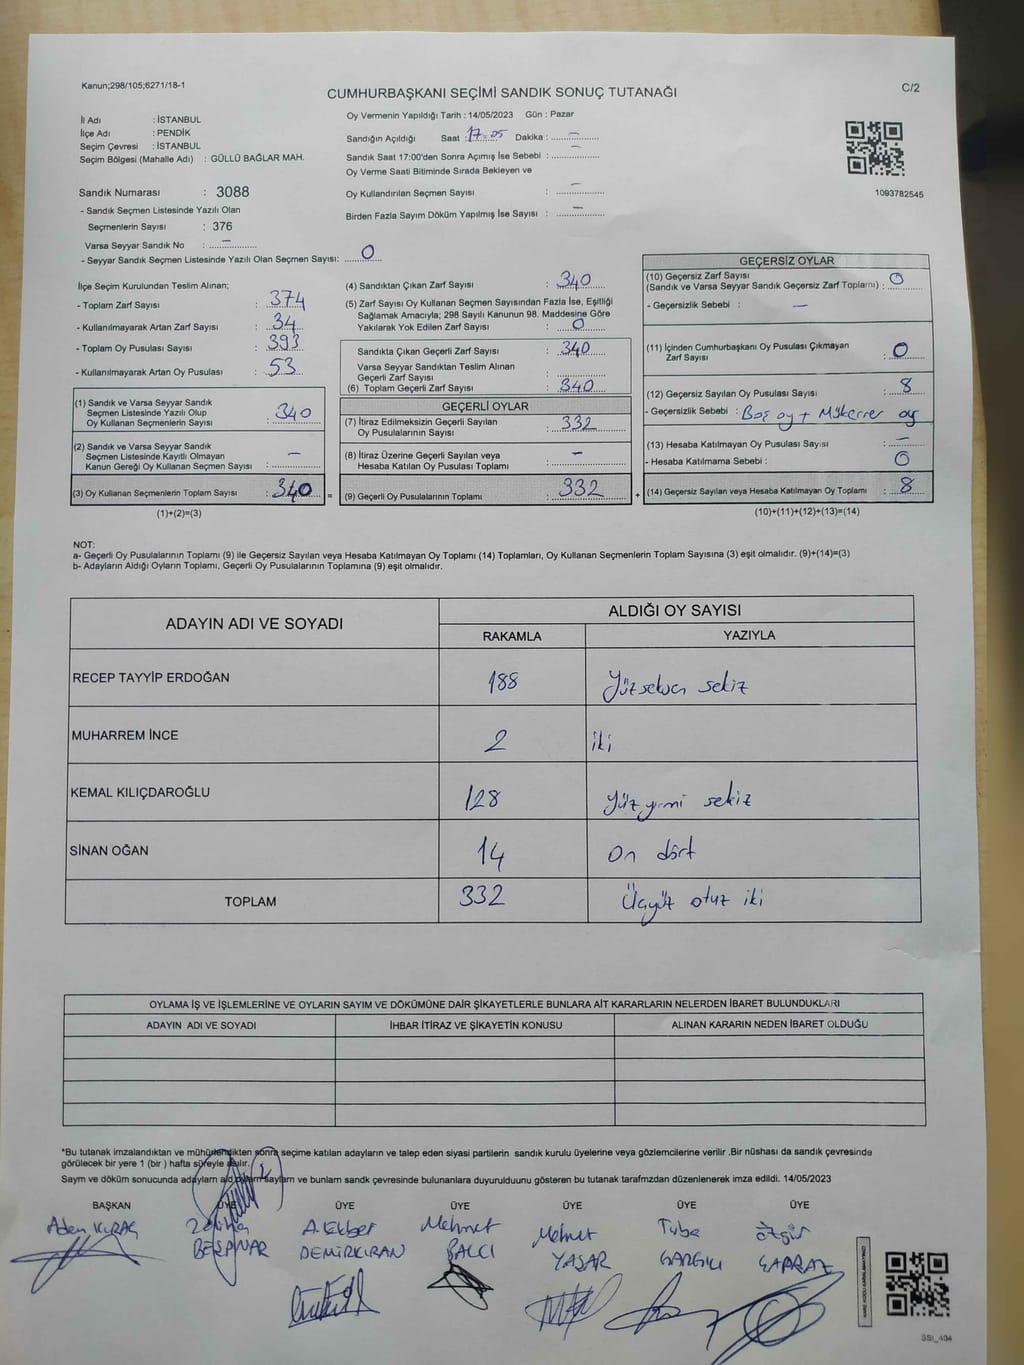 Kanun;298/105;6271/18-1
C/2
CUMHURBAŞKANI SEÇİMİ SANDIK SONUÇ TUTANAĞI
İl Adı : İSTANBUL
İlçe Adı : PENDİK
Seçim Çevresi : İSTANBUL
Seçim Bölgesi (Mahalle Adı) : GÜLLÜ BAĞLAR MAH.
Sandık Numarası : 3088
- Sandık Seçmen Listesinde Yazılı Olan
Seçmenlerin Sayısı : 376
Varsa Seyyar Sandık No : –
- Seyyar Sandık Seçmen Listesinde Yazılı Olan Seçmen Sayısı: 0
Oy Vermenin Yapıldığı Tarih : 14/05/2023 Gün : Pazar
Sandığın Açıldığı Saat : 17.05 Dakika : –
Sandık Saat 17:00'den Sonra Açımış İse Sebebi : –
Oy Verme Saati Bitiminde Sırada Bekleyen ve
Oy Kullandırılan Seçmen Sayısı : –
Birden Fazla Sayım Döküm Yapılmış İse Sayısı : –
1093782545
İlçe Seçim Kurulundan Teslim Alınan;
- Toplam Zarf Sayısı : 374
- Kullanılmayarak Artan Zarf Sayısı : 34
- Toplam Oy Pusulası Sayısı : 393
- Kullanılmayarak Artan Oy Pusulası : 53
(1) Sandık ve Varsa Seyyar Sandık
Seçmen Listesinde Yazılı Olup
Oy Kullanan Seçmenlerin Sayısı : 340
(2) Sandık ve Varsa Seyyar Sandık
Seçmen Listesinde Kayıtlı Olmayan
Kanun Gereği Oy Kullanan Seçmen Sayısı : –
(3) Oy Kullanan Seçmenlerin Toplam Sayısı : 340
(1)+(2)=(3)
=
(4) Sandıktan Çıkan Zarf Sayısı : 340
(5) Zarf Sayısı Oy Kullanan Seçmen Sayısından Fazla İse, Eşitliği
Sağlamak Amacıyla; 298 Sayılı Kanunun 98. Maddesine Göre
Yakılarak Yok Edilen Zarf Sayısı : 0
Sandıkta Çıkan Geçerli Zarf Sayısı : 340
Varsa Seyyar Sandıktan Teslim Alınan
Geçerli Zarf Sayısı :
(6) Toplam Geçerli Zarf Sayısı : 340
GEÇERLİ OYLAR
(7) İtiraz Edilmeksizin Geçerli Sayılan
Oy Pusulalarının Sayısı : 332
(8) İtiraz Üzerine Geçerli Sayılan veya
Hesaba Katılan Oy Pusulası Toplamı : –
(9) Geçerli Oy Pusulalarının Toplamı : 332
+
GEÇERSİZ OYLAR
(10) Geçersiz Zarf Sayısı
(Sandık ve Varsa Seyyar Sandık Geçersiz Zarf Toplamı) : 0
- Geçersizlik Sebebi : –
(11) İçinden Cumhurbaşkanı Oy Pusulası Çıkmayan
Zarf Sayısı : 0
(12) Geçersiz Sayılan Oy Pusulası Sayısı : 8
- Geçersizlik Sebebi : Boş oy + Mükerrer oy
(13) Hesaba Katılmayan Oy Pusulası Sayısı : –
- Hesaba Katılmama Sebebi : 0
(14) Geçersiz Sayılan veya Hesaba Katılmayan Oy Toplamı : 8
(10)+(11)+(12)+(13)=(14)
NOT:
a- Geçerli Oy Pusulalarının Toplamı (9) ile Geçersiz Sayılan veya Hesaba Katılmayan Oy Toplamı (14) Toplamları, Oy Kullanan Seçmenlerin Toplam Sayısına (3) eşit olmalıdır. (9)+(14)=(3)
b- Adayların Aldığı Oyların Toplamı, Geçerli Oy Pusulalarının Toplamına (9) eşit olmalıdır.
ADAYIN ADI VE SOYADI ALDIĞI OY SAYISI
RAKAMLA YAZIYLA
RECEP TAYYİP ERDOĞAN 188 Yüzseksen sekiz
MUHARREM İNCE 2 iki
KEMAL KILIÇDAROĞLU 128 Yüz yirmi sekiz
SİNAN OĞAN 14 On dört
TOPLAM 332 Üçyüz otuz iki
OYLAMA İŞ VE İŞLEMLERİNE VE OYLARIN SAYIM VE DÖKÜMÜNE DAİR ŞİKAYETLERLE BUNLARA AİT KARARLARIN NELERDEN İBARET BULUNDUKLARI
ADAYIN ADI VE SOYADI İHBAR İTİRAZ VE ŞİKAYETİN KONUSU ALINAN KARARIN NEDEN İBARET OLDUĞU
*Bu tutanak imzalandıktan ve mühürlendikten sonra seçime katılan adayların ve talep eden siyasi partilerin sandık kurulu üyelerine veya gözlemcilerine verilir .Bir nüshası da sandık çevresinde
görülecek bir yere 1 (bir ) hafta süreyle asılır.
Sayım ve döküm sonucunda adayların ve bunların sandık çevresinde bulunanlara duyurulduunu gösteren bu tutanak tarafımızdan düzenlenerek imza edildi. 14/05/2023
BAŞKAN ÜYE ÜYE ÜYE ÜYE ÜYE ÜYE
Adem KIRAÇ Zeliha A. Ekber Mehmet Mehmet Tuba Özgür
BEŞPINAR DEMİRKIRAN BALCI YAŞAR GARGILI ÇAPRAZ
SSI_404